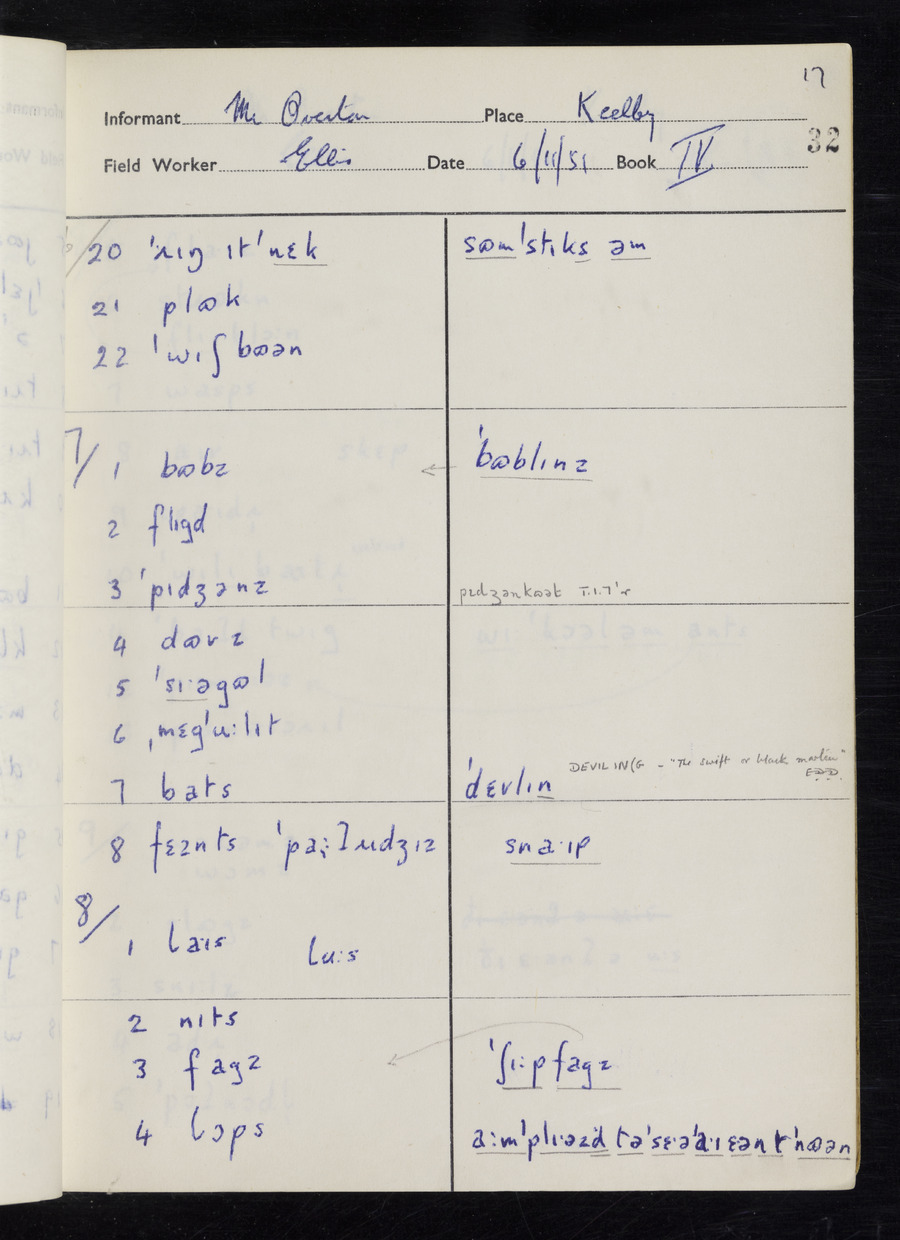 17
Informant Mr Overton Place Keelby
32
Field Worker Ellis Date 6/11/51 Book IV
20 ˈɹɪŋ ɪtˈnɛk sɷmˈstɪks əm
21 plɷk
22 ˈwɪʃbɷən
7/
1 bɷbz ˈbɷblɪnz
2 flɪgd
3 ˈpɪdʒənz pɪdʒənkɷət T.I.T's
4 dɷvz
5 ˈsɪ:əgɷl
6 ˌmɛgˈu:lɪt
7 bats ˈdɛvlɪn DEVILIN(G - "The swift or black martin"
EDD.
8 fɛznts ˈpa:ʈɹɪdʒɪz sna:ɪp
8/
1 laɪs lu:s
2 nɪts
3 fagz ˈʃɪ:pfagz
4 lɔps a:mˈplɪəzd təˈsɛəˈa:ɪ ɛənt ˈnɷən